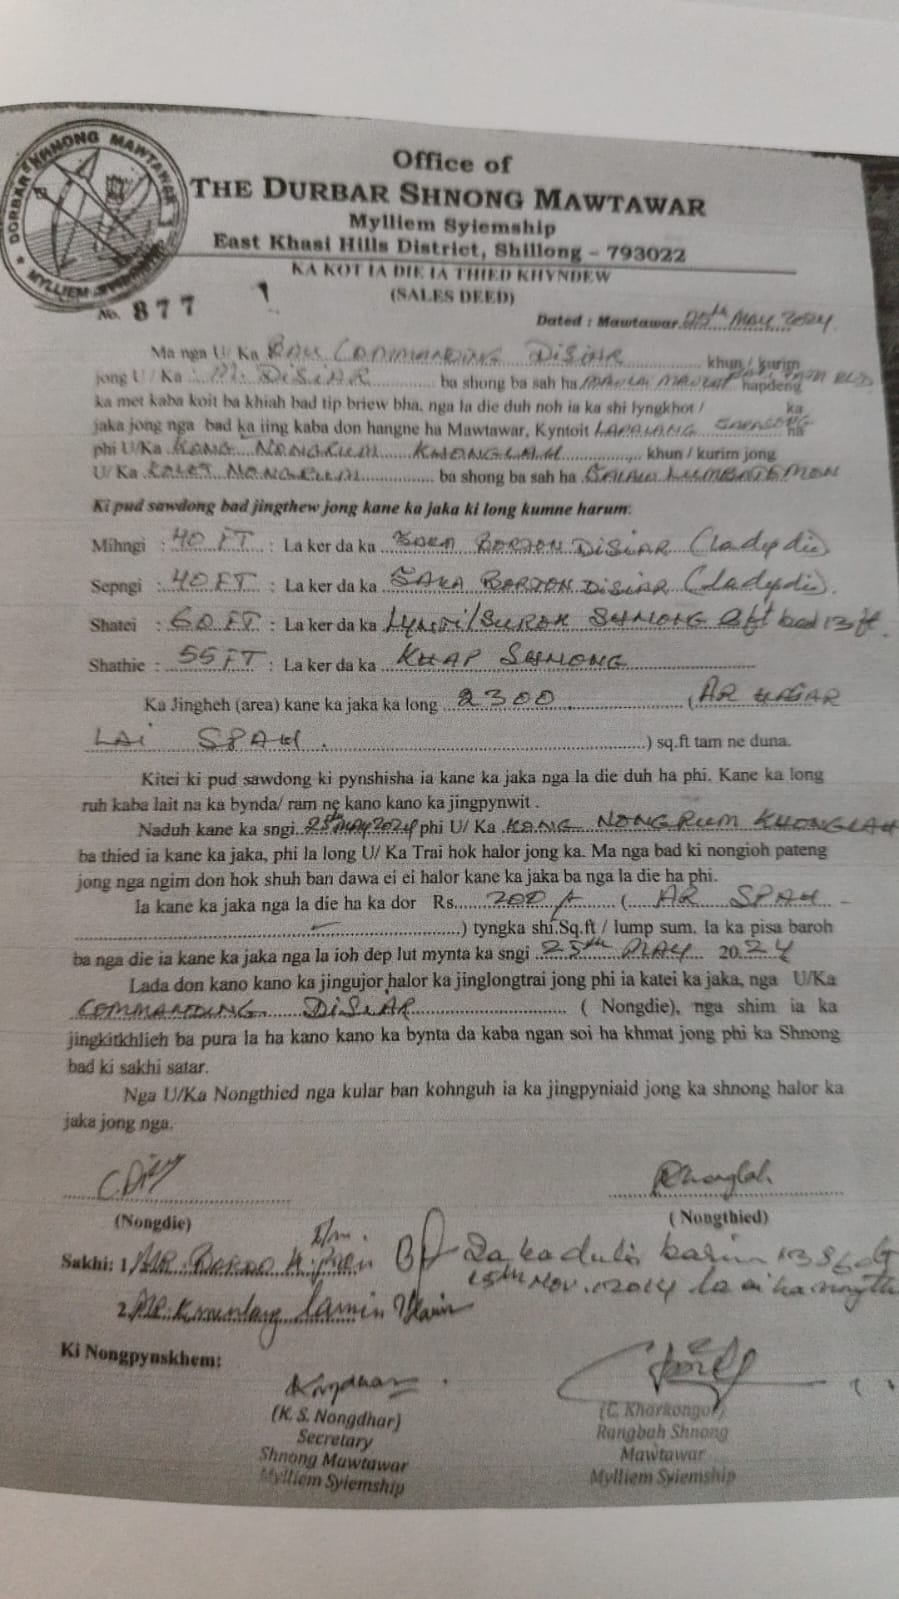 DORBAR SHNONG MAWTAWAR
MYLLIEM SYIEMSHIP
Office of
THE DURBAR SHNONG MAWTAWAR
Mylliem Syiemship
East Khasi Hills District, Shillong – 793022
KA KOT IA DIE IA THIED KHYNDEW
(SALES DEED)
No. 877
Dated : Mawtawar 25th MAY 2024
Ma nga U/ Ka BAH COMMANDING DISIAR khun / kurim
jong U / Ka DISIAR ba shong ba sah ha hapdeng
ka met kaba koit ba khiah bad tip briew bha, nga la die duh noh ia ka shi lyngkhot /
jaka jong nga bad ka iing kaba don hangne ha Mawtawar, Kyntoit LAPALANG ka / na
phi U/Ka KONG NONGRUM KHONGLAH khun / kurim jong
U/ Ka NONGRUM ba shong ba sah ha
Ki pud sawdong bad jingthew jong kane ka jaka ki long kumne harum:
Mihngi : 40 FT : La ker da ka JAKA BORJON DISIAR (Ladep die)
Sepngi : 40 FT : La ker da ka JAKA BORJON DISIAR (Ladepdie).
Shatei : 60 FT : La ker da ka LYNTI/SUROK SHNONG 8ft bad 13ft.
Shathie : 55 FT : La ker da ka KHAP SHNONG
Ka Jingheh (area) kane ka jaka ka long 2300 (AR HAJAR
LAI SPAH ) sq.ft tam ne duna.
Kitei ki pud sawdong ki pynshisha ia kane ka jaka nga la die duh ha phi. Kane ka long
ruh kaba lait na ka bynda/ ram ne kano kano ka jingpynwit .
Naduh kane ka sngi 25th MAY 2024 phi U/ Ka KONG NONGRUM KHONGLAH
ba thied ia kane ka jaka, phi la long U/ Ka Trai hok halor jong ka. Ma nga bad ki nongioh pateng
jong nga ngim don hok shuh ban dawa ei ei halor kane ka jaka ba nga la die ha phi.
Ia kane ka jaka nga la die ha ka dor Rs. 200/- ( AR SPAH -
) tyngka shi.Sq.ft / lump sum. Ia ka pisa baroh
ba nga die ia kane ka jaka nga la ioh dep lut mynta ka sngi 25th MAY 2024
Lada don kano kano ka jingujor halor ka jinglongtrai jong phi ia katei ka jaka, nga U/Ka
COMMANDING DISIAR ( Nongdie), nga shim ia ka
jingkitkhlieh ba pura la ha kano kano ka bynta da kaba ngan soi ha khmat jong phi ka Shnong
bad ki sakhi satar.
Nga U/Ka Nongthied nga kular ban kohnguh ia ka jingpyniaid jong ka shnong halor ka
jaka jong nga.
(Nongdie)
( Nongthied)
Sakhi: 1.
2.
15th Nov. 2014
Ki Nongpynskhem:
(K. S. Nongdhar)
Secretary
Shnong Mawtawar
Mylliem Syiemship
(C. Kharkongor)
Rangbah Shnong
Mawtawar
Mylliem Syiemship